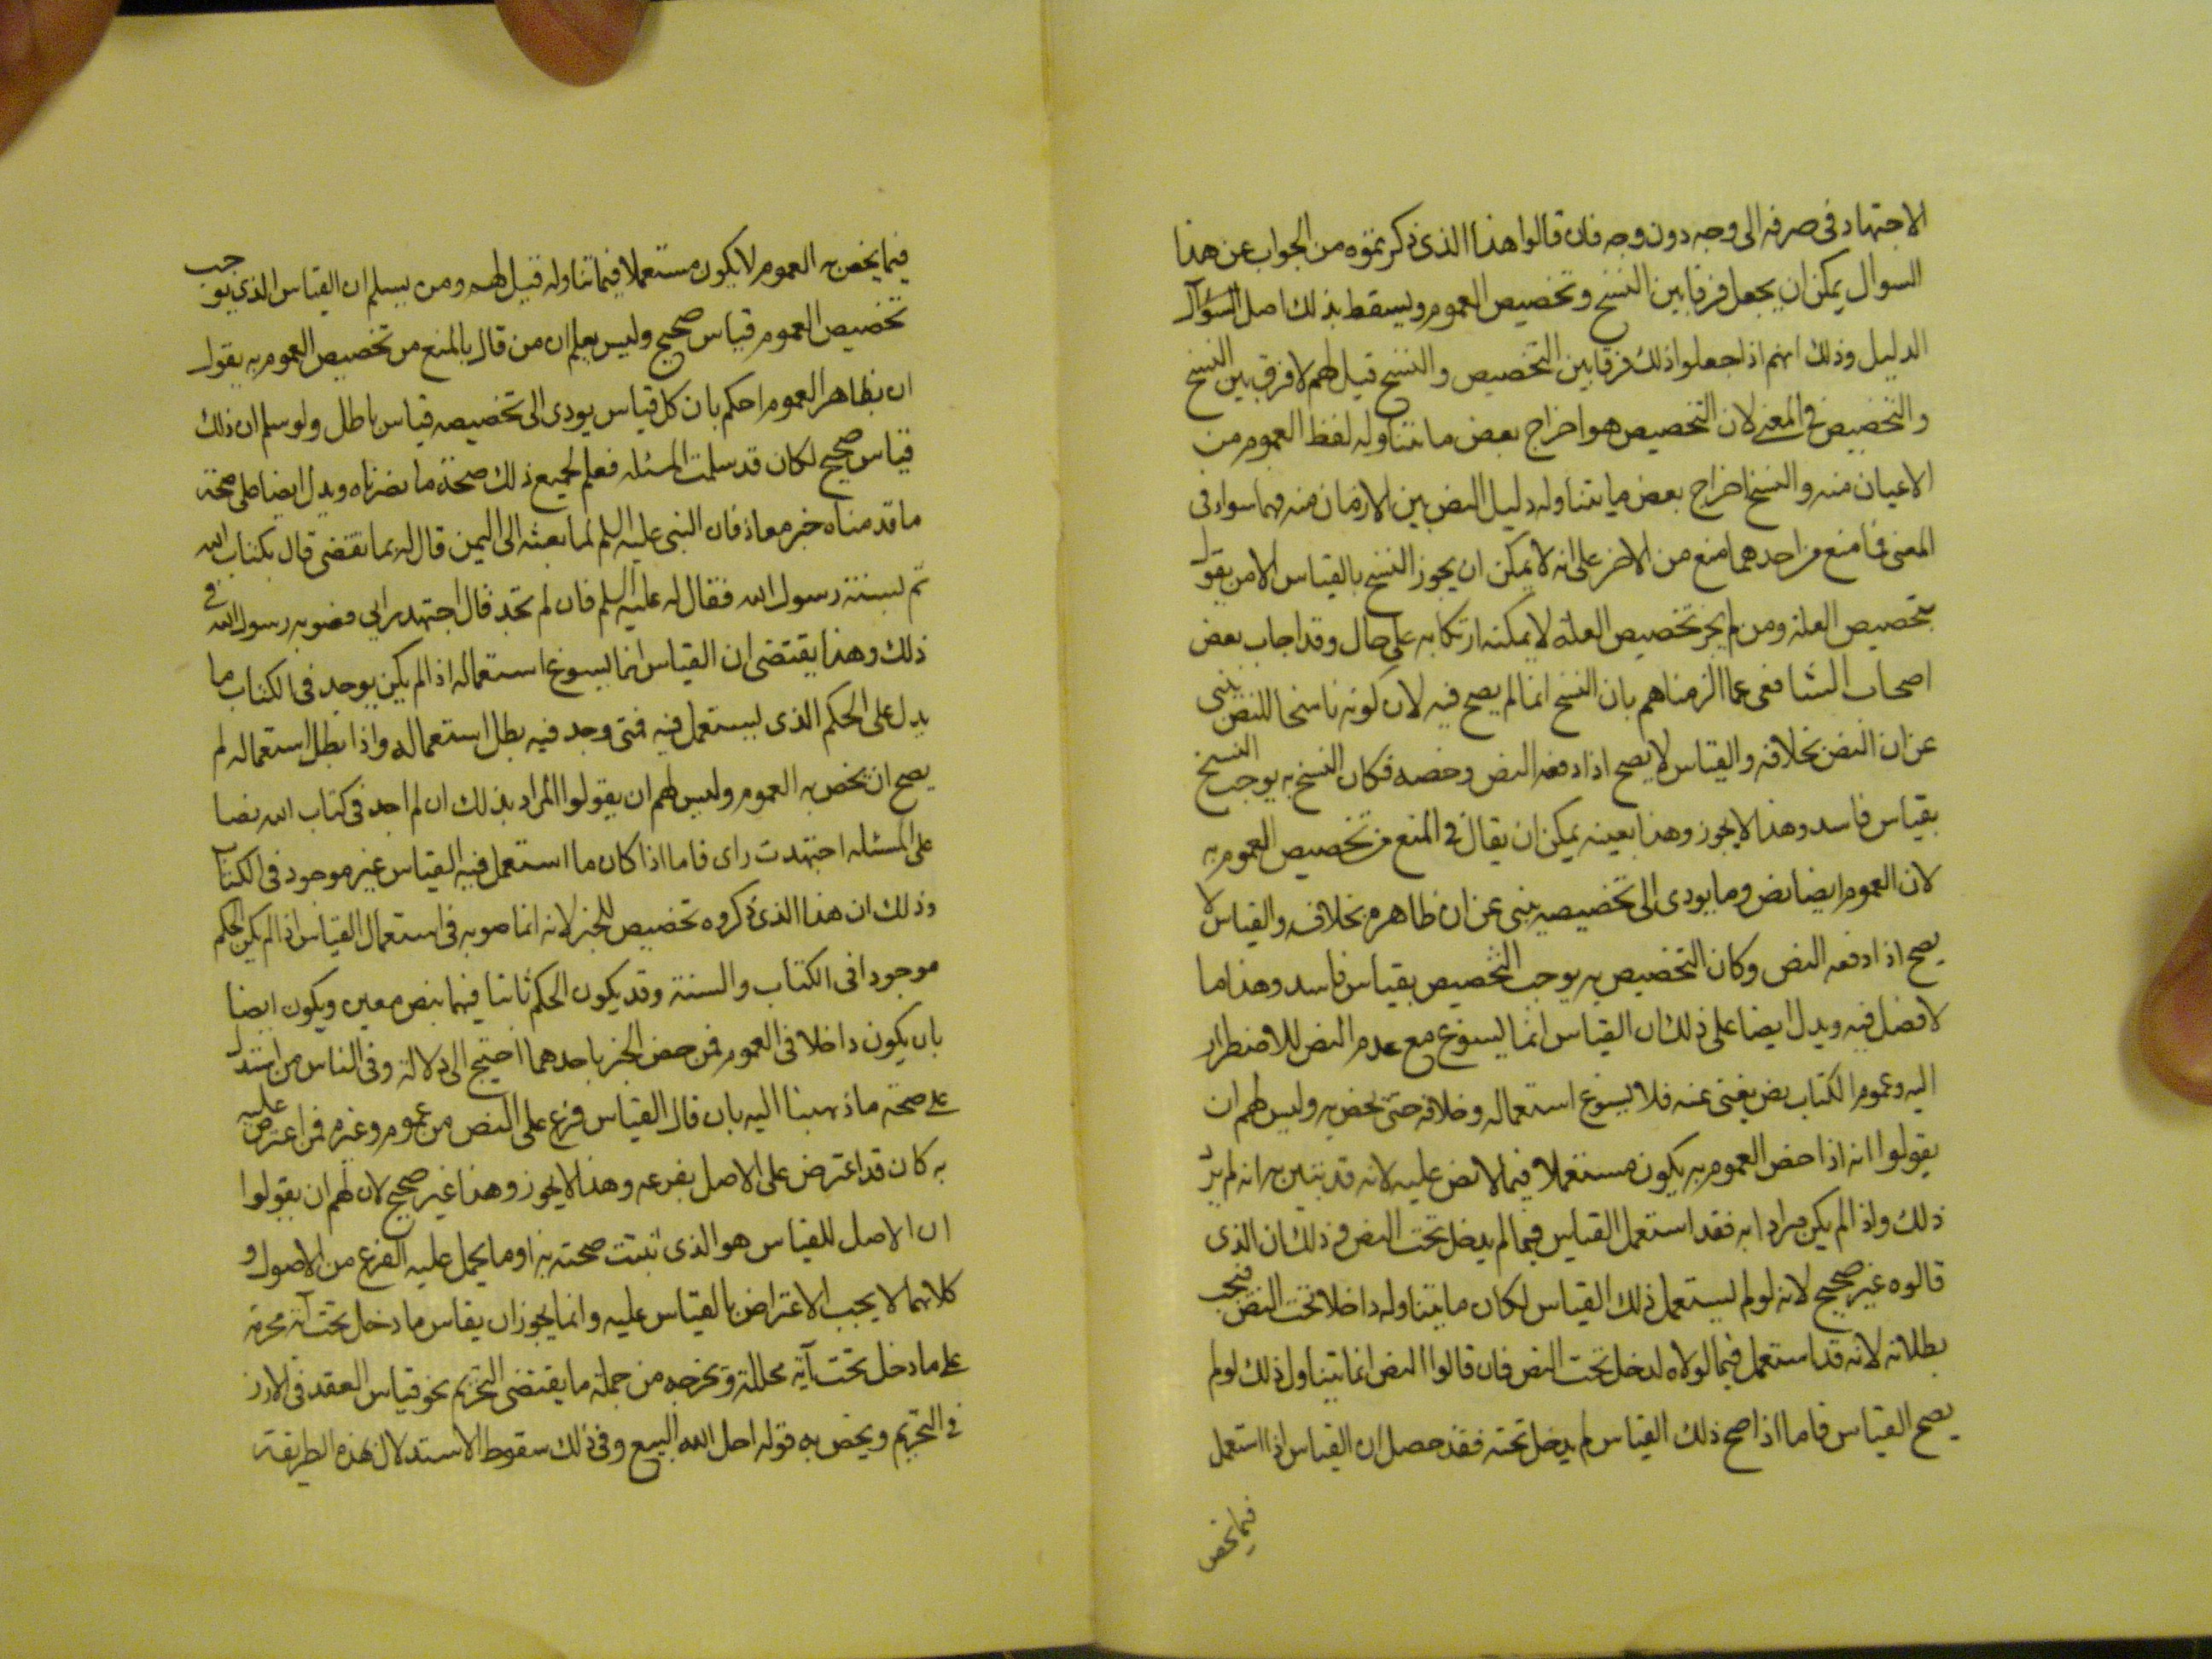 الاجتهاد فى صرفه الى وجه دون وجه فان قالوا هذا الذى ذكرتموه من الجواب عن هذا
السوال يمكن ان يجعل فرقا بين النسخ و تخصيص العموم ويسقط بذلك اصل السؤال
الدليل وذلك انهم اذا جعلوا ذلك فرقا بين التخصيص و النسخ قيل لهم لا فرق بين النسخ
و التخصيص في المعنى لان التخصيص هو اخراج بعض ما يتناوله لفظ العموم من
الاعيان منه و النسخ اخراج بعض ما يتناوله دليل النص بين الازمان منه فهما سواء فى
المعنى فما منع من احدهما منع من الاخر على انه لا يمكن ان يجوز النسخ بالقياس الا من يقول
بتخصيص العلة ومن لم يجز تخصيص العلة لا يمكنه ارتكابه على حال وقد اجاب بعض
اصحاب الشافعى عما الزمناهم بان النسخ انما لم يصح فيه لان كونه ناسخا للنص ينبى
عن ان النص بخلافه و القياس لا يصح اذا دفعه النص وخصه فكان النسخ به يوجب النسخ
بقياس فاسد وهذا لا يجوز وهذا بعينه يمكن ان يقال في المنع من تخصيص العموم به
لان العموم ايضا نص وما يودى الى تخصيصه ينبى عن ان ظاهره بخلافه والقياس لا
يصح اذا دفعه النص وكان التخصيص به يوجب التخصيص بقياس فاسد وهذا ما
لا فصل فيه ويدل ايضا على ذلك ان القياس انما يسوغ مع عدم النص للاضطرار
اليه وعموم الكتاب نص يغنى عنه فلا يسوغ استعماله وخلافه حتى يخص به وليس لهم ان
يقولوا انه اذا خص العموم به يكون مستعملا فيما لا نص عليه لانه قد تبين به انه لم يرد
ذلك واذا لم يكن مرادا به فقد استعمل القياس فيما لم يدخل تحت النص وذلك ان الذى
قالوه غير صحيح لانه لو لم يستعمل ذلك القياس لكان ما يتناوله داخلا تحت النص فيجب
بطلانه لانه قد استعمل فيما لولاه لدخل تحت النص فان قالوا النص انما يتناول ذلك لو لم
يصح القياس فاما اذا صح ذلك القياس لم يدخل تحته فقد حصل ان القياس اذا استعمل
فيما يخص
فيما يخص به العموم لا يكون مستعملا فيما تناوله قيل لهم ومن يسلم ان القياس الذي يوجب
تخصيص العموم قياس صحيح وليس يعلم ان من قال بالمنع من تخصيص العموم به يقول
ان بظاهر العموم احكم بان كل قياس يودى الى تخصيصه قياس باطل ولو سلم ان ذلك
قياس صحيح لكان قد سلمت المسئله فعلم بجميع ذلك صحة ما نصرناه ويدل ايضا على صحة
ما قدمناه خبر معاذ فان النبى عليه السلم لما بعثه الى اليمن قال له بما تقضى قال بكتاب الله
ثم بسنة رسول الله فقال له عليه السلم فان لم تجد قال اجتهد رايى فصوبه رسول الله في
ذلك وهذا يقتضى ان القياس انما يسوغ استعماله اذا لم يكن يوجد فى الكتاب ما
يدل على الحكم الذى يستعمل فيه فمتى وجد فيه بطل استعماله واذا بطل استعماله لم
يصح ان يخص به العموم وليس لهم ان يقولوا المراد بذلك ان لم اجد فى كتاب الله نصا
على المسئله اجتهدت راى فاما اذا كان ما استعمل فيه القياس غير موجود فى الكتاب
وذلك ان هذا الذى ذكروه تخصيص للخبر لانه انما صوبه فى استعمال القياس اذا لم يكن الحكم
موجودا فى الكتاب و السنة وقد يكون الحكم ثابتا فيهما بنص معين ويكون ايضا
بان يكون داخلا فى العموم فمن خص الخبر باحدهما احتيج الى دلالة وفى الناس من استدل
على صحة ما ذهبنا اليه بان قال القياس فرع على النص من عموم وغيره فمن اعترض عليه
به كان قد اعترض على الاصل بفرعه وهذا لا يجوز وهذا غير صحيح لان لهم ان يقولوا
ان الاصل للقياس هو الذى تثبت صحته به او ما يحمل عليه الفرع من الاصول و
كلاهما لا يجب الاعتراض بالقياس عليه وانما يجوز ان يقاس ما دخل تحت آية محرمة
على ما دخل تحت آية محللة وتخرجه من جملة ما يقتضى التحريم نحو قياس العقد فى الارز
في التحريم ويخص به قوله احل الله البيع وفى ذلك سقوط الاستدلال بهذه الطريقة